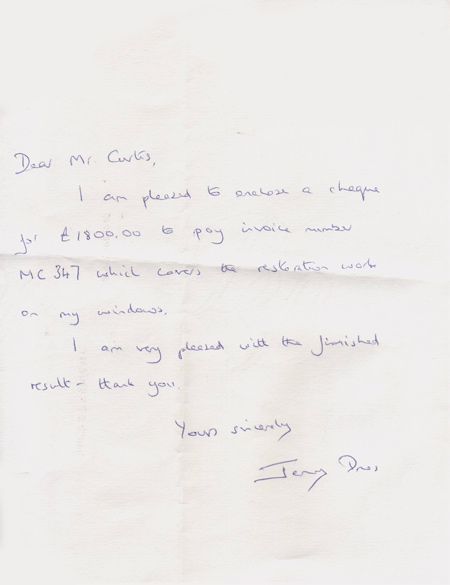 Dear Mr. Curtis,
I am pleased to enclose a cheque
for £1800.00 to pay invoice number
MC 347 which covers the restoration work
on my windows.
I am very pleased with the finished
result - thank you.
Yours sincerely